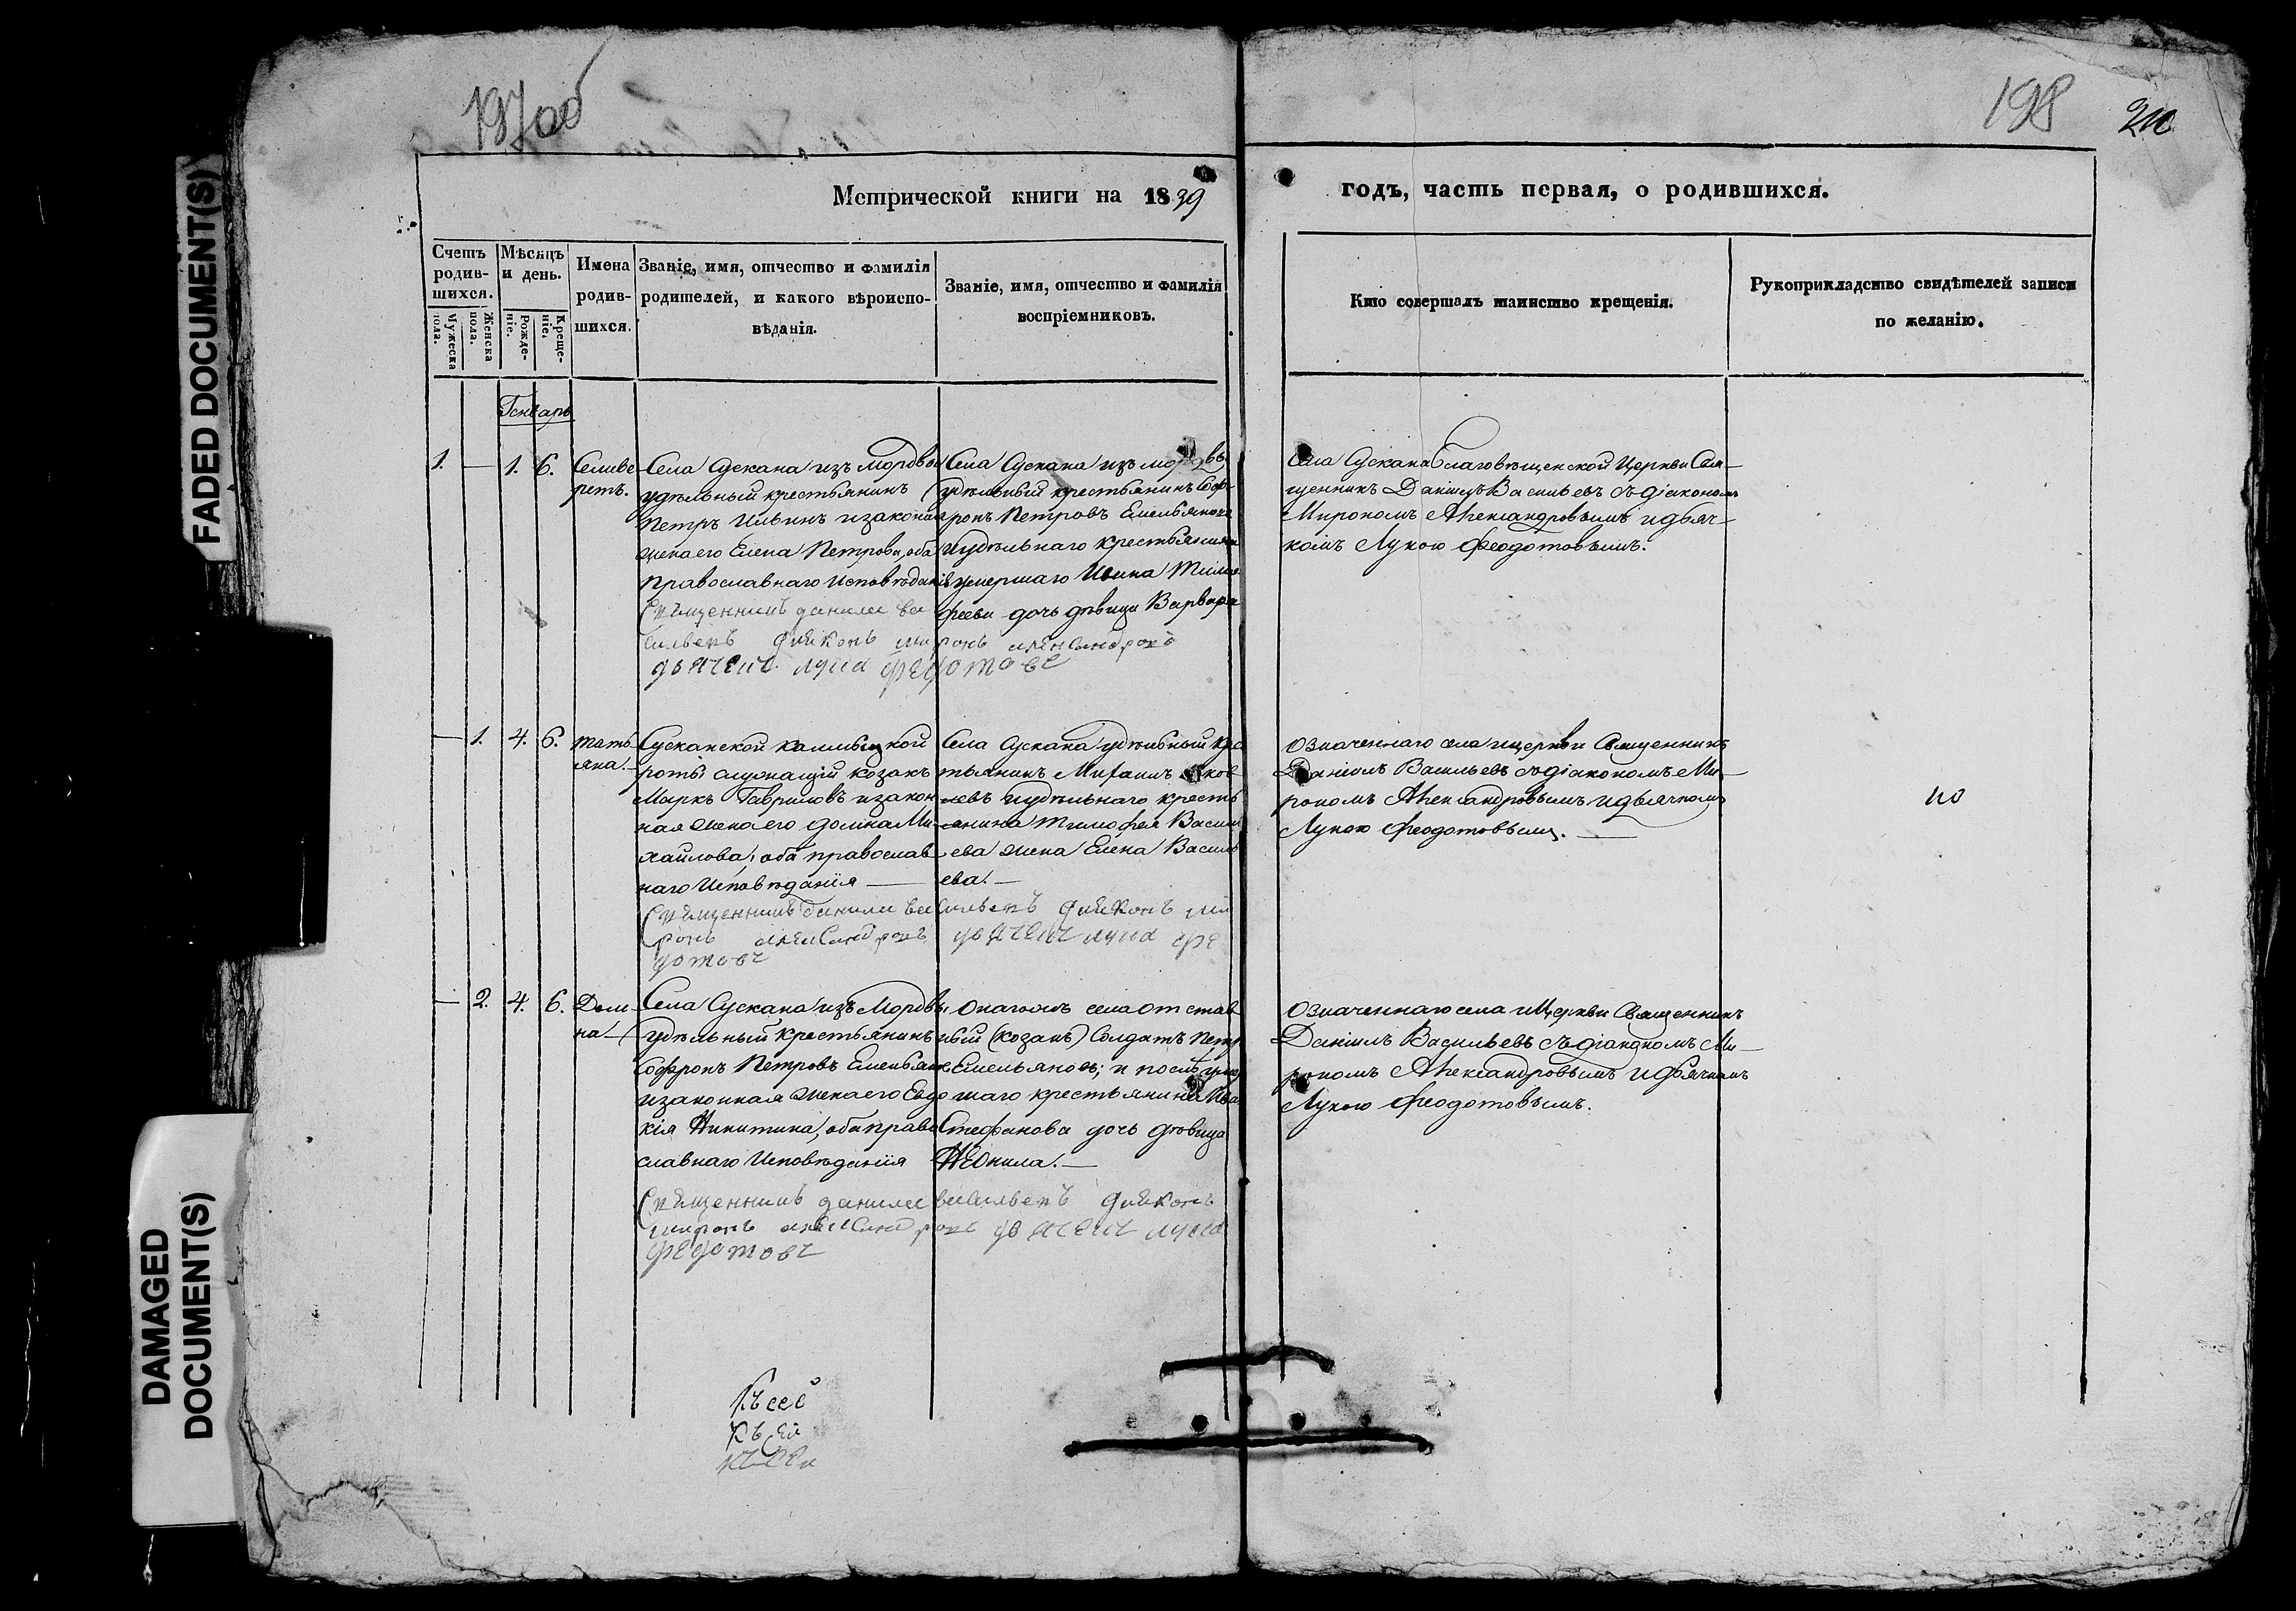 197об
198
210
Метрической книги на 1839
годъ, часть первая, о родившихся.
Счетъ родившихся.
Мужеска пола.
Женска пола.
Мѣсяцъ и день.
Рожденіе.
Крещеніе.
Имена
родив-
шихся.
Званіе, имя, отчество и фамилія
родителей, и какого вѣроиспо-
вѣданія.
Званіе, имя, отчество и фамилія
воспріемниковъ.
Кто совершалъ таинство крещенія.
Рукоприкладство свидѣтелей записи
по желанію.
Генварь
1. — 1. 6.
Селиве-
рстъ.
Села Сускана изъ мордвы
удѣльный крестьянинъ
Петръ Ильинъ и законная
жена его Елена Петрова, оба
православнаго исповѣданія
Священникъ данилъ ва
сильевъ диаконъ миронъ александровъ
дьячекъ лука федотовъ
Села Сускана изъ мордвы
удѣльный крестьянинъ Соф-
ронъ Петровъ Емельяновъ
и удѣльнаго крестьянина
умершаго Ивана Тимо-
феева дочь дѣвица Варвара
Села Сускана Благовѣщенской Церкви Свя-
щенникъ Даніилъ Васильевъ съ діакономъ
Мирономъ Александровымъ и дьяч-
комъ Лукою Феодотовымъ.
— 1. 4. 6.
Тать-
яна.
Сусканской калмыцкой
роты служащій козакъ
Маркъ Гавриловъ и закон-
ная жена его Домна Ми-
хайлова, оба православ-
наго исповѣданія —
Священникъ данилъ васильевъ диаконъ ми
ронъ александровъ дьячекъ лука фе
дотовъ
Села Сускана удѣльный крес
тьянинъ Михаилъ Яков
левъ и удѣльнаго кресть
янина Тимофея Василь
ева жена Елена Василь
ева. —
Означеннаго села и церкви Священникъ
Даніилъ Васильевъ съ діакономъ Ми-
рономъ Александровымъ и дьячкомъ
Лукою Феодотовымъ. —
— 2. 4. 6.
Дом-
на —
Села Сускана изъ Мордвы
удѣльный крестьянинъ
Софронъ Петровъ Емельяновъ
и законная жена его Евдо
кія Никитина, оба право
славнаго исповѣданія
Священникъ данилъ васильевъ диаконъ
миронъ александровъ дьячекъ лука
федотовъ
Онагожъ села отстав
ный (козакъ) Солдатъ Петръ
Емельяновъ; и послѣ умер
шаго крестьянина Ива
Стефанова дочь дѣвица
Неонила. —
Означеннаго села и Церкви Священникъ
Даніилъ Васильевъ съ діакономъ Ми-
рономъ Александровымъ и дьячкомъ
Лукою Феодотовымъ.
Къ сей
къ сей
FADED DOCUMENT(S)
DAMAGED
DOCUMENT(S)